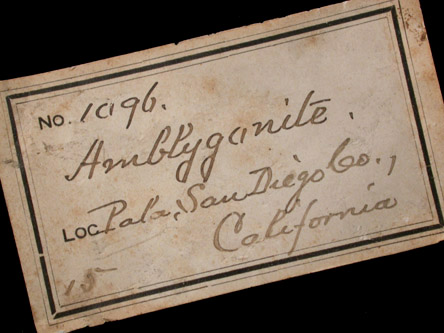 No. 1096.
Amblygonite.
Loc Pala, San Diego Co.,
California
15